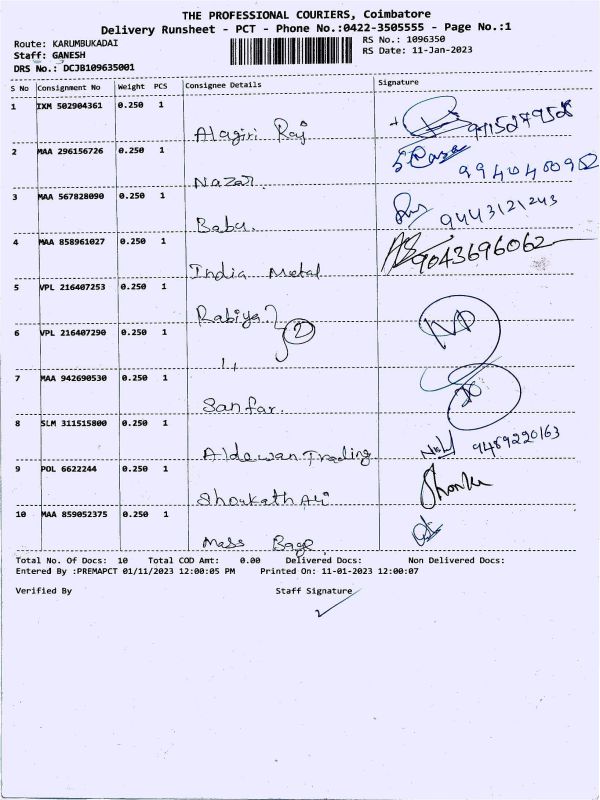 THE PROFESSIONAL COURIERS, Coimbatore
Delivery Runsheet - PCT - Phone No.:0422-3505555 - Page No.:1
Route: KARUMBUKADAI RS No.: 1096350
Staff: GANESH RS Date: 11-Jan-2023
DRS No.: DCJB109635001
S No Consignment No Weight PCS Consignee Details Signature
1 IXM 502904361 0.250 1 Alagiri Raj
2 MAA 296156726 0.250 1 Nazar 9940400952
3 MAA 567828090 0.250 1 Babu. 9443121243
4 MAA 858961027 0.250 1 India Metal 9043696062
5 VPL 216407253 0.250 1 Rabiya 2
6 VPL 216407290 0.250 1 ,,
7 MAA 942690530 0.250 1 Sanfar.
8 SLM 311515800 0.250 1 Aldewan Trading 9489220163
9 POL 6622244 0.250 1 Shoukath Ali
10 MAA 859052375 0.250 1 Mass Bage
Total No. Of Docs: 10 Total COD Amt: 0.00 Delivered Docs: Non Delivered Docs:
Entered By :PREMAPCT 01/11/2023 12:00:05 PM Printed On: 11-01-2023 12:00:07
Verified By Staff Signature